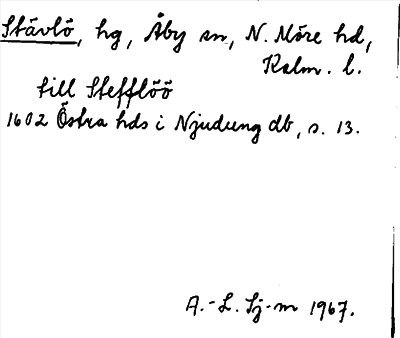 Stävlö, hg, Åby sn, N. Möre hd,
Kalm. l.
till Stefflöö
1602 Östra hds i Njudung db, s. 13.
A.-L. Sj-m 1967.